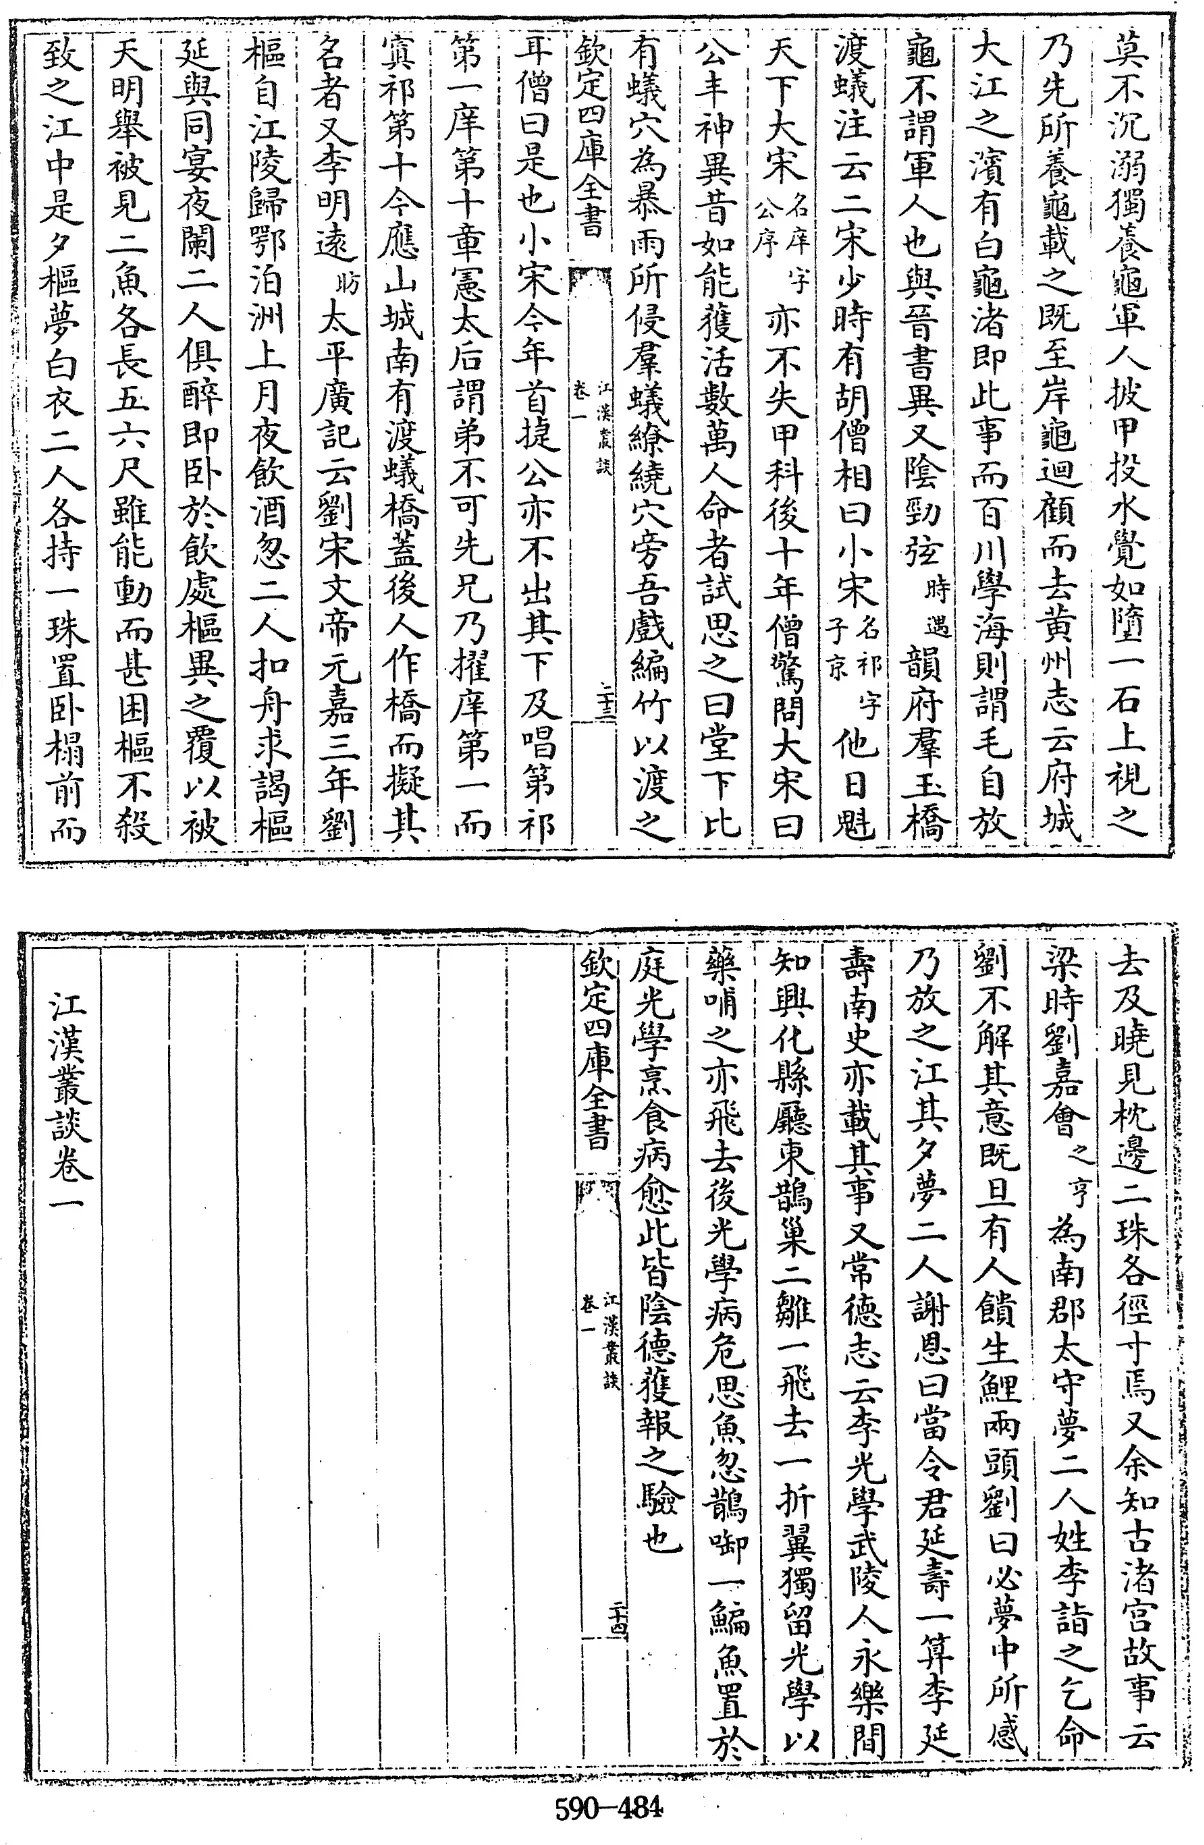 莫不沉溺獨養龜軍人披甲投水覺如墮一石上視之
乃先所養龜載之既至岸龜迴顧而去黄州志云府城
大江之濱有白龜渚即此事而百川學海則謂毛自放
龜不謂軍人也與晉書異又陰勁弦時遇韻府羣玉橋
渡蟻注云二宋少時有胡僧相曰小宋名祁字子京他日魁
天下大宋名庠字公序亦不失甲科後十年僧驚問大宋曰
公丰神異昔如能獲活數萬人命者試思之曰堂下比
有蟻穴為暴雨所侵羣蟻繚繞穴旁吾戲編竹以渡之
欽定四庫全書 江漢叢談 卷一 二十三
耳僧曰是也小宋今年首捷公亦不出其下及唱第祁
第一庠第十章憲太后謂弟不可先兄乃擢庠第一而
寘祁第十今應山城南有渡蟻橋蓋後人作橋而擬其
名者又李明遠昉太平廣記云劉宋文帝元嘉三年劉
樞自江陵歸鄂泊洲上月夜飲酒忽二人扣舟求謁樞
延與同宴夜闌二人俱醉即卧於飲處樞異之覆以被
天明舉被見二魚各長五六尺雖能動而甚困樞不殺
致之江中是夕樞夢白衣二人各持一珠置卧榻前而
去及曉見枕邊二珠各徑寸焉又余知古渚宮故事云
梁時劉嘉會之亨為南郡太守夢二人姓李詣之乞命
劉不解其意既旦有人饋生鯉兩頭劉曰必夢中所感
乃放之江其夕夢二人謝恩曰當令君延壽一算李延
壽南史亦載其事又常德志云李光學武陵人永樂間
知興化縣廳東鵲巢二雛一飛去一折翼獨留光學以
藥哺之亦飛去後光學病危思魚忽鵲啣一鯿魚置於
庭光學烹食病愈此皆陰德獲報之驗也
欽定四庫全書 江漢叢談 卷一 二十四
江漢叢談卷一
590-484